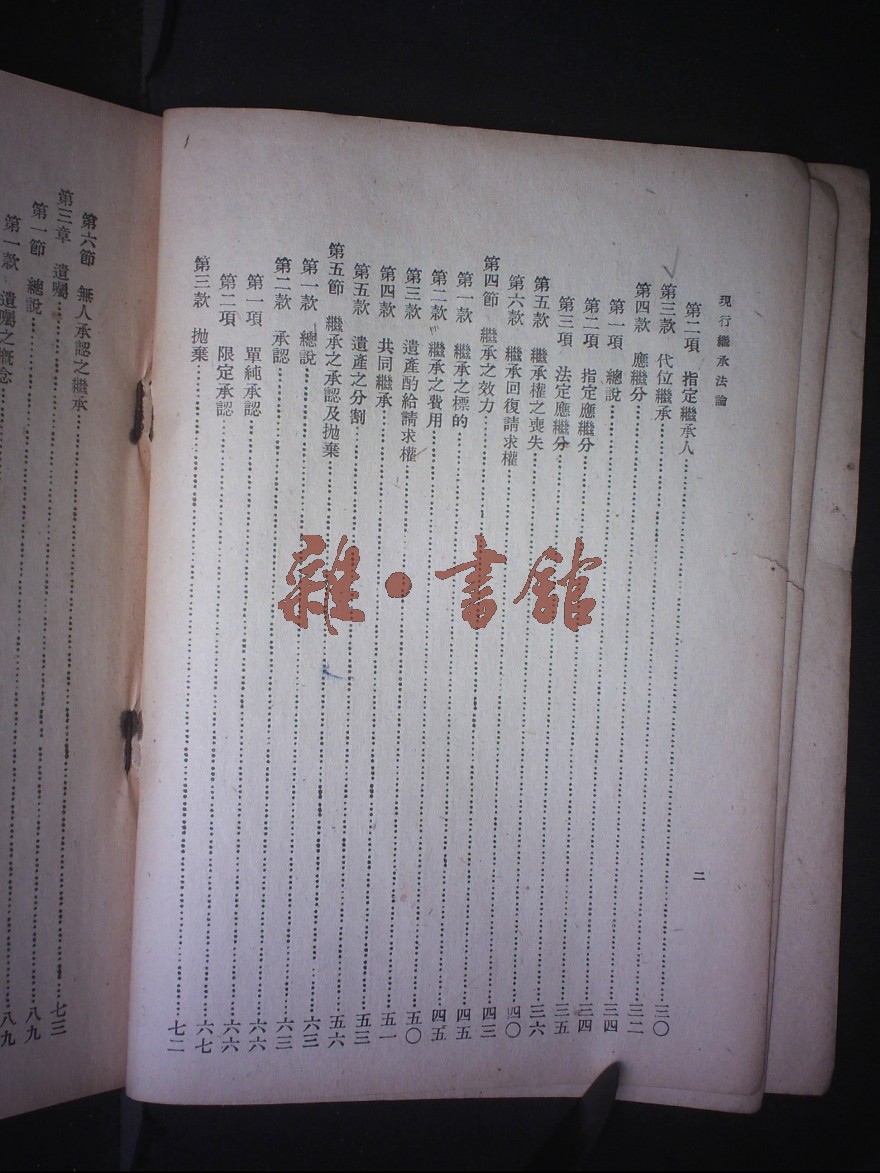 現行繼承法論 二
第二項 指定繼承人……三〇
第三款 代位繼承……三二
第四款 應繼分……三四
第一項 總說……三四
第二項 指定應繼分……三五
第三項 法定應繼分……三六
第五款 繼承權之喪失……四〇
第六款 繼承回復請求權……四三
第四節 繼承之效力……四五
第一款 繼承之標的……四五
第二款 繼承之費用……五〇
第三款 遺產酌給請求權……五一
第四款 共同繼承……五三
第五款 遺產之分割……五六
第五節 繼承之承認及拋棄……六三
第一款 總說……六三
第二款 承認……六六
第一項 單純承認……六六
第二項 限定承認……六七
第三款 拋棄……七二
第六節 無人承認之繼承……七三
第三章 遺囑……八九
第一節 總說……八九
第一款 遺囑之概念……
雜·書館